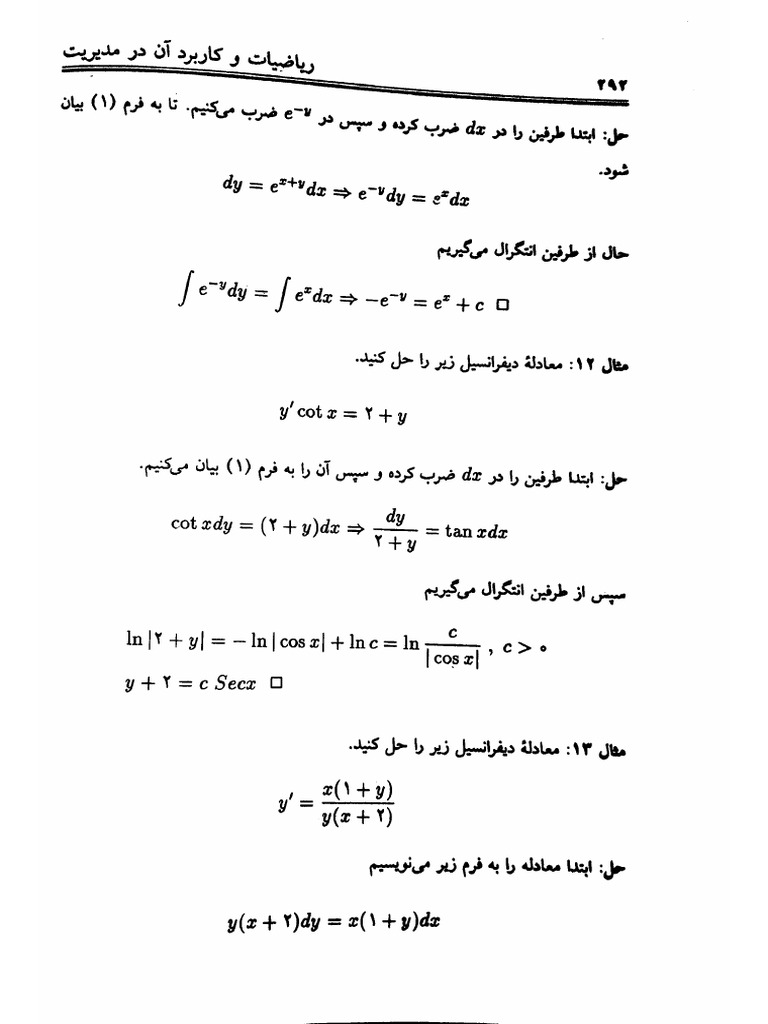 ریاضیات و کاربرد آن در مدیریت
۲۹۲
حل: ابتدا طرفین را در dx ضرب کرده و سپس در e^{-y} ضرب می‌کنیم. تا به فرم (۱) بیان
شود.
dy = e^{x+y}dx ⇒ e^{-y}dy = e^{x}dx
حال از طرفین انتگرال می‌گیریم
∫ e^{-y}dy = ∫ e^{x}dx ⇒ -e^{-y} = e^{x} + c □
مثال ۱۲: معادلهٔ دیفرانسیل زیر را حل کنید.
y′ cot x = ۲ + y
حل: ابتدا طرفین را در dx ضرب کرده و سپس آن را به فرم (۱) بیان می‌کنیم.
cot xdy = (۲ + y)dx ⇒ dy/(۲ + y) = tan xdx
سپس از طرفین انتگرال می‌گیریم
ln |۲ + y| = - ln | cos x| + ln c = ln c/|cos x| , c > ۰
y + ۲ = c Secx □
مثال ۱۳: معادلهٔ دیفرانسیل زیر را حل کنید.
y′ = x(۱ + y)/y(x + ۲)
حل: ابتدا معادله را به فرم زیر می‌نویسیم
y(x + ۲)dy = x(۱ + y)dx